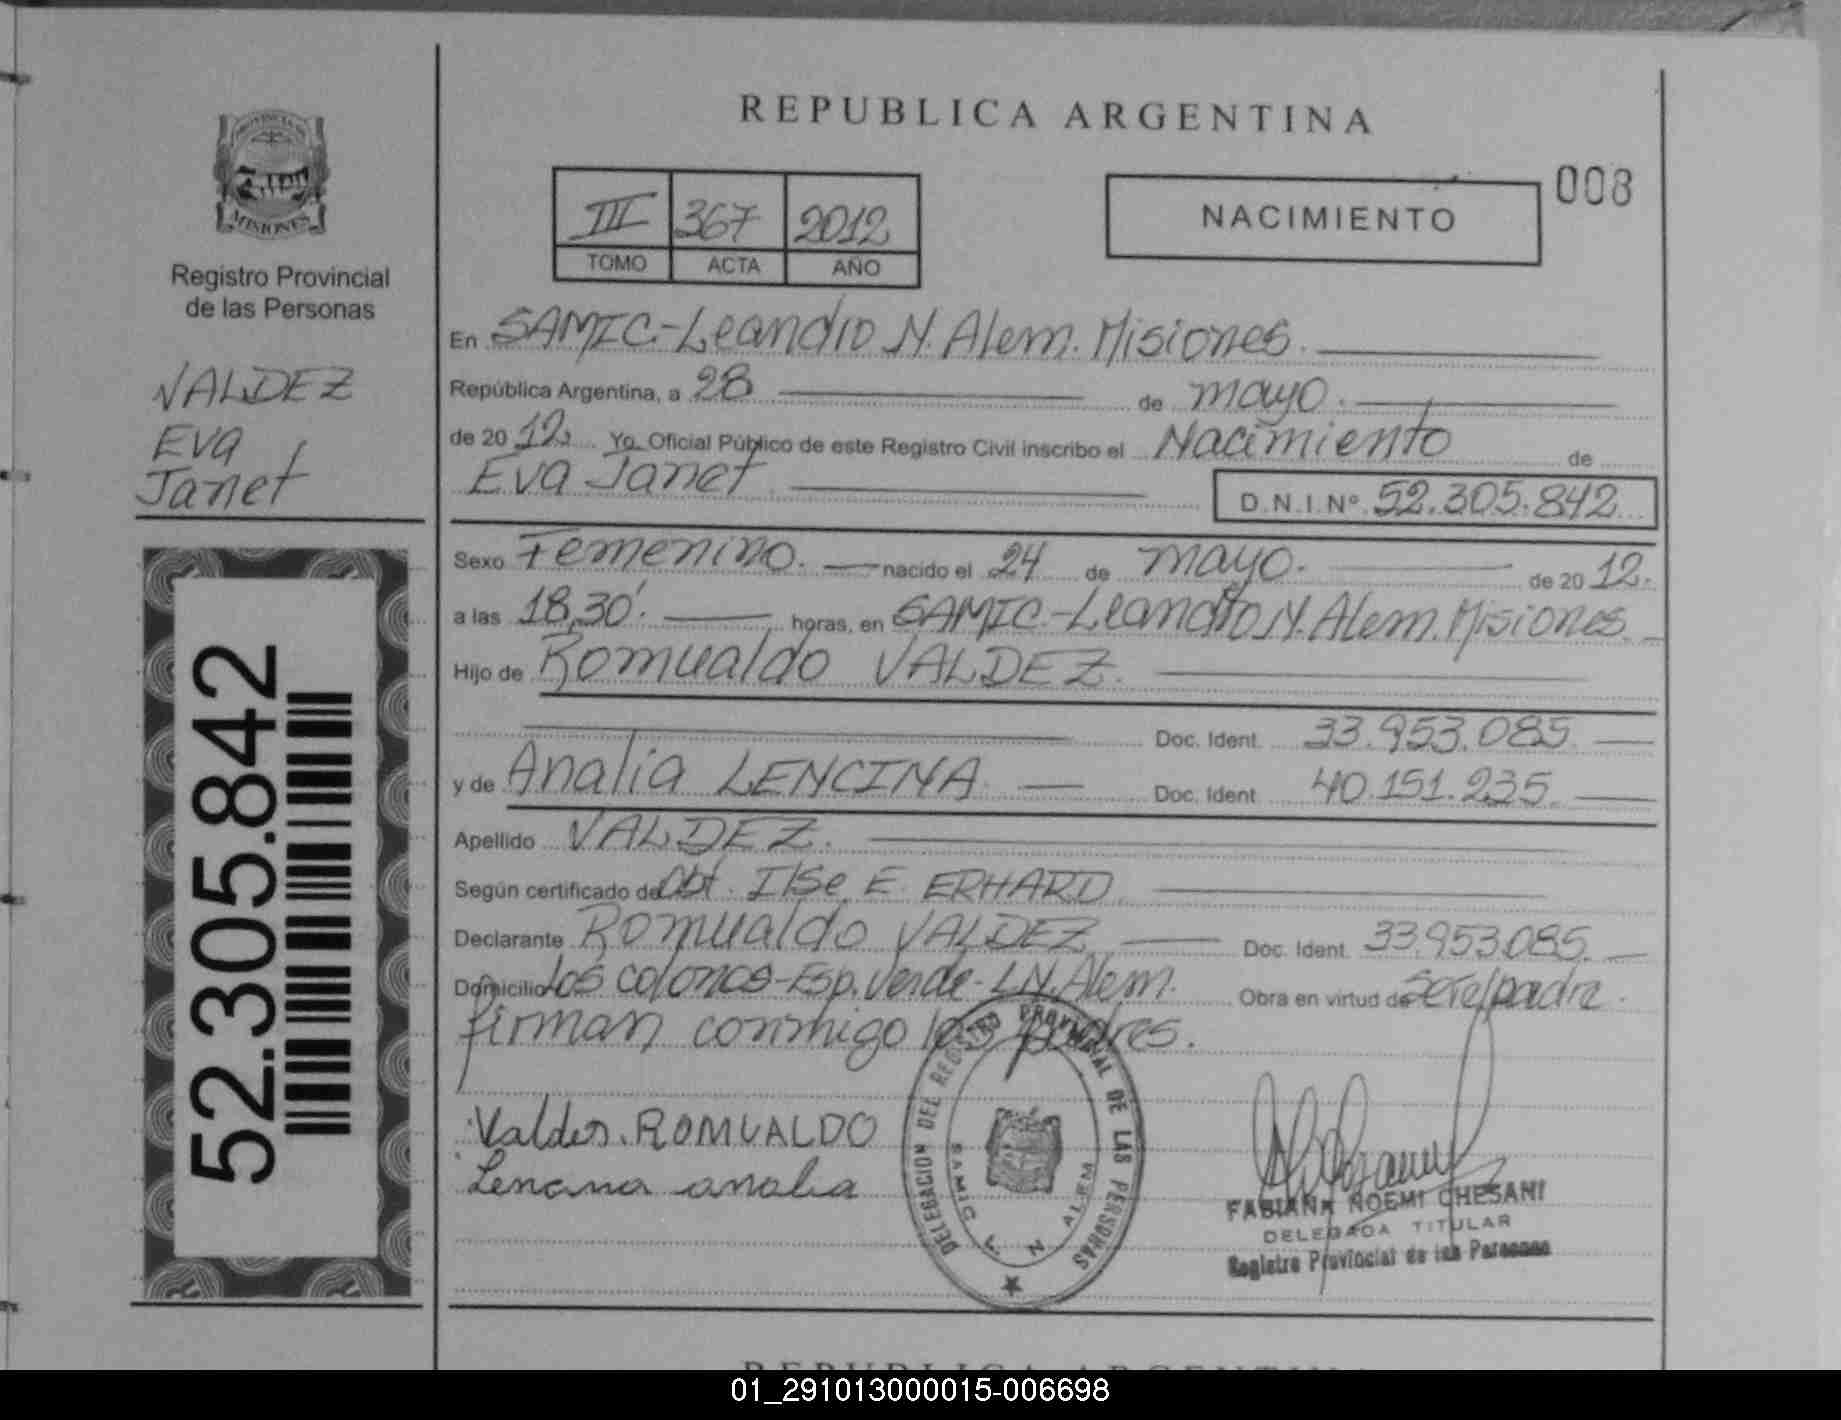 REPUBLICA ARGENTINA
PROVINCIA DE
MISIONES
Registro Provincial
de las Personas
III 367 2012
TOMO ACTA AÑO
NACIMIENTO
008
VALDEZ
Eva
Janet
En SAMIC-Leandro N. Alem. Misiones.
República Argentina, a 28 de mayo.
de 2012. Yo, Oficial Público de este Registro Civil inscribo el Nacimiento de
Eva Janet D.N.I.Nº 52.305.842
Sexo Femenino. nacido el 24 de mayo. de 2012.
a las 18,30'. horas, en SAMIC-Leandro N. Alem. Misiones.
Hijo de Romualdo VALDEZ.
Doc. Ident. 33.953.085.
y de Analia LENCINA Doc. Ident. 40.151.235.
Apellido VALDEZ.
Según certificado de Obt. Ilse E. ERHARD.
Declarante Romualdo VALDEZ Doc. Ident. 33.953.085.
Domicilio Los colonos-Esp. Verde-L.N. Alem. Obra en virtud de ser el padre.
firman conmigo los padres.
Valdez. ROMUALDO
Lencina analia
DELEGACION DEL REGISTRO PROVINCIAL DE LAS PERSONAS
SAMIC L. N. ALEM
FABIANA NOEMI CHESANI
DELEGADA TITULAR
Registro Provincial de las Personas
52.305.842
REPUBLICA ARGENTINA
01_291013000015-006698